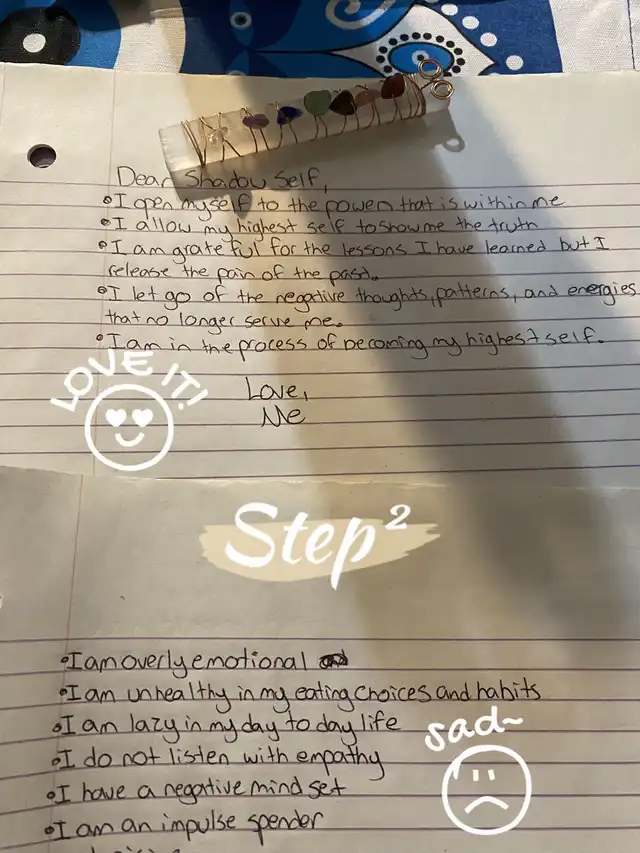 Dear Shadow Self,
•I open myself to the power that is within me
•I allow my highest self to show me the truth
•I am grateful for the lessons I have learned but I
release the pain of the past.
•I let go of the negative thoughts, patterns, and energies
that no longer serve me.
•I am in the process of becoming my highest self.
LOVE IT!
Love,
Me
Step²
•I am overly emotional
•I am unhealthy in my eating choices and habits
•I am lazy in my day to day life
sad~
•I do not listen with empathy
•I have a negative mind set
•I am an impulse spender